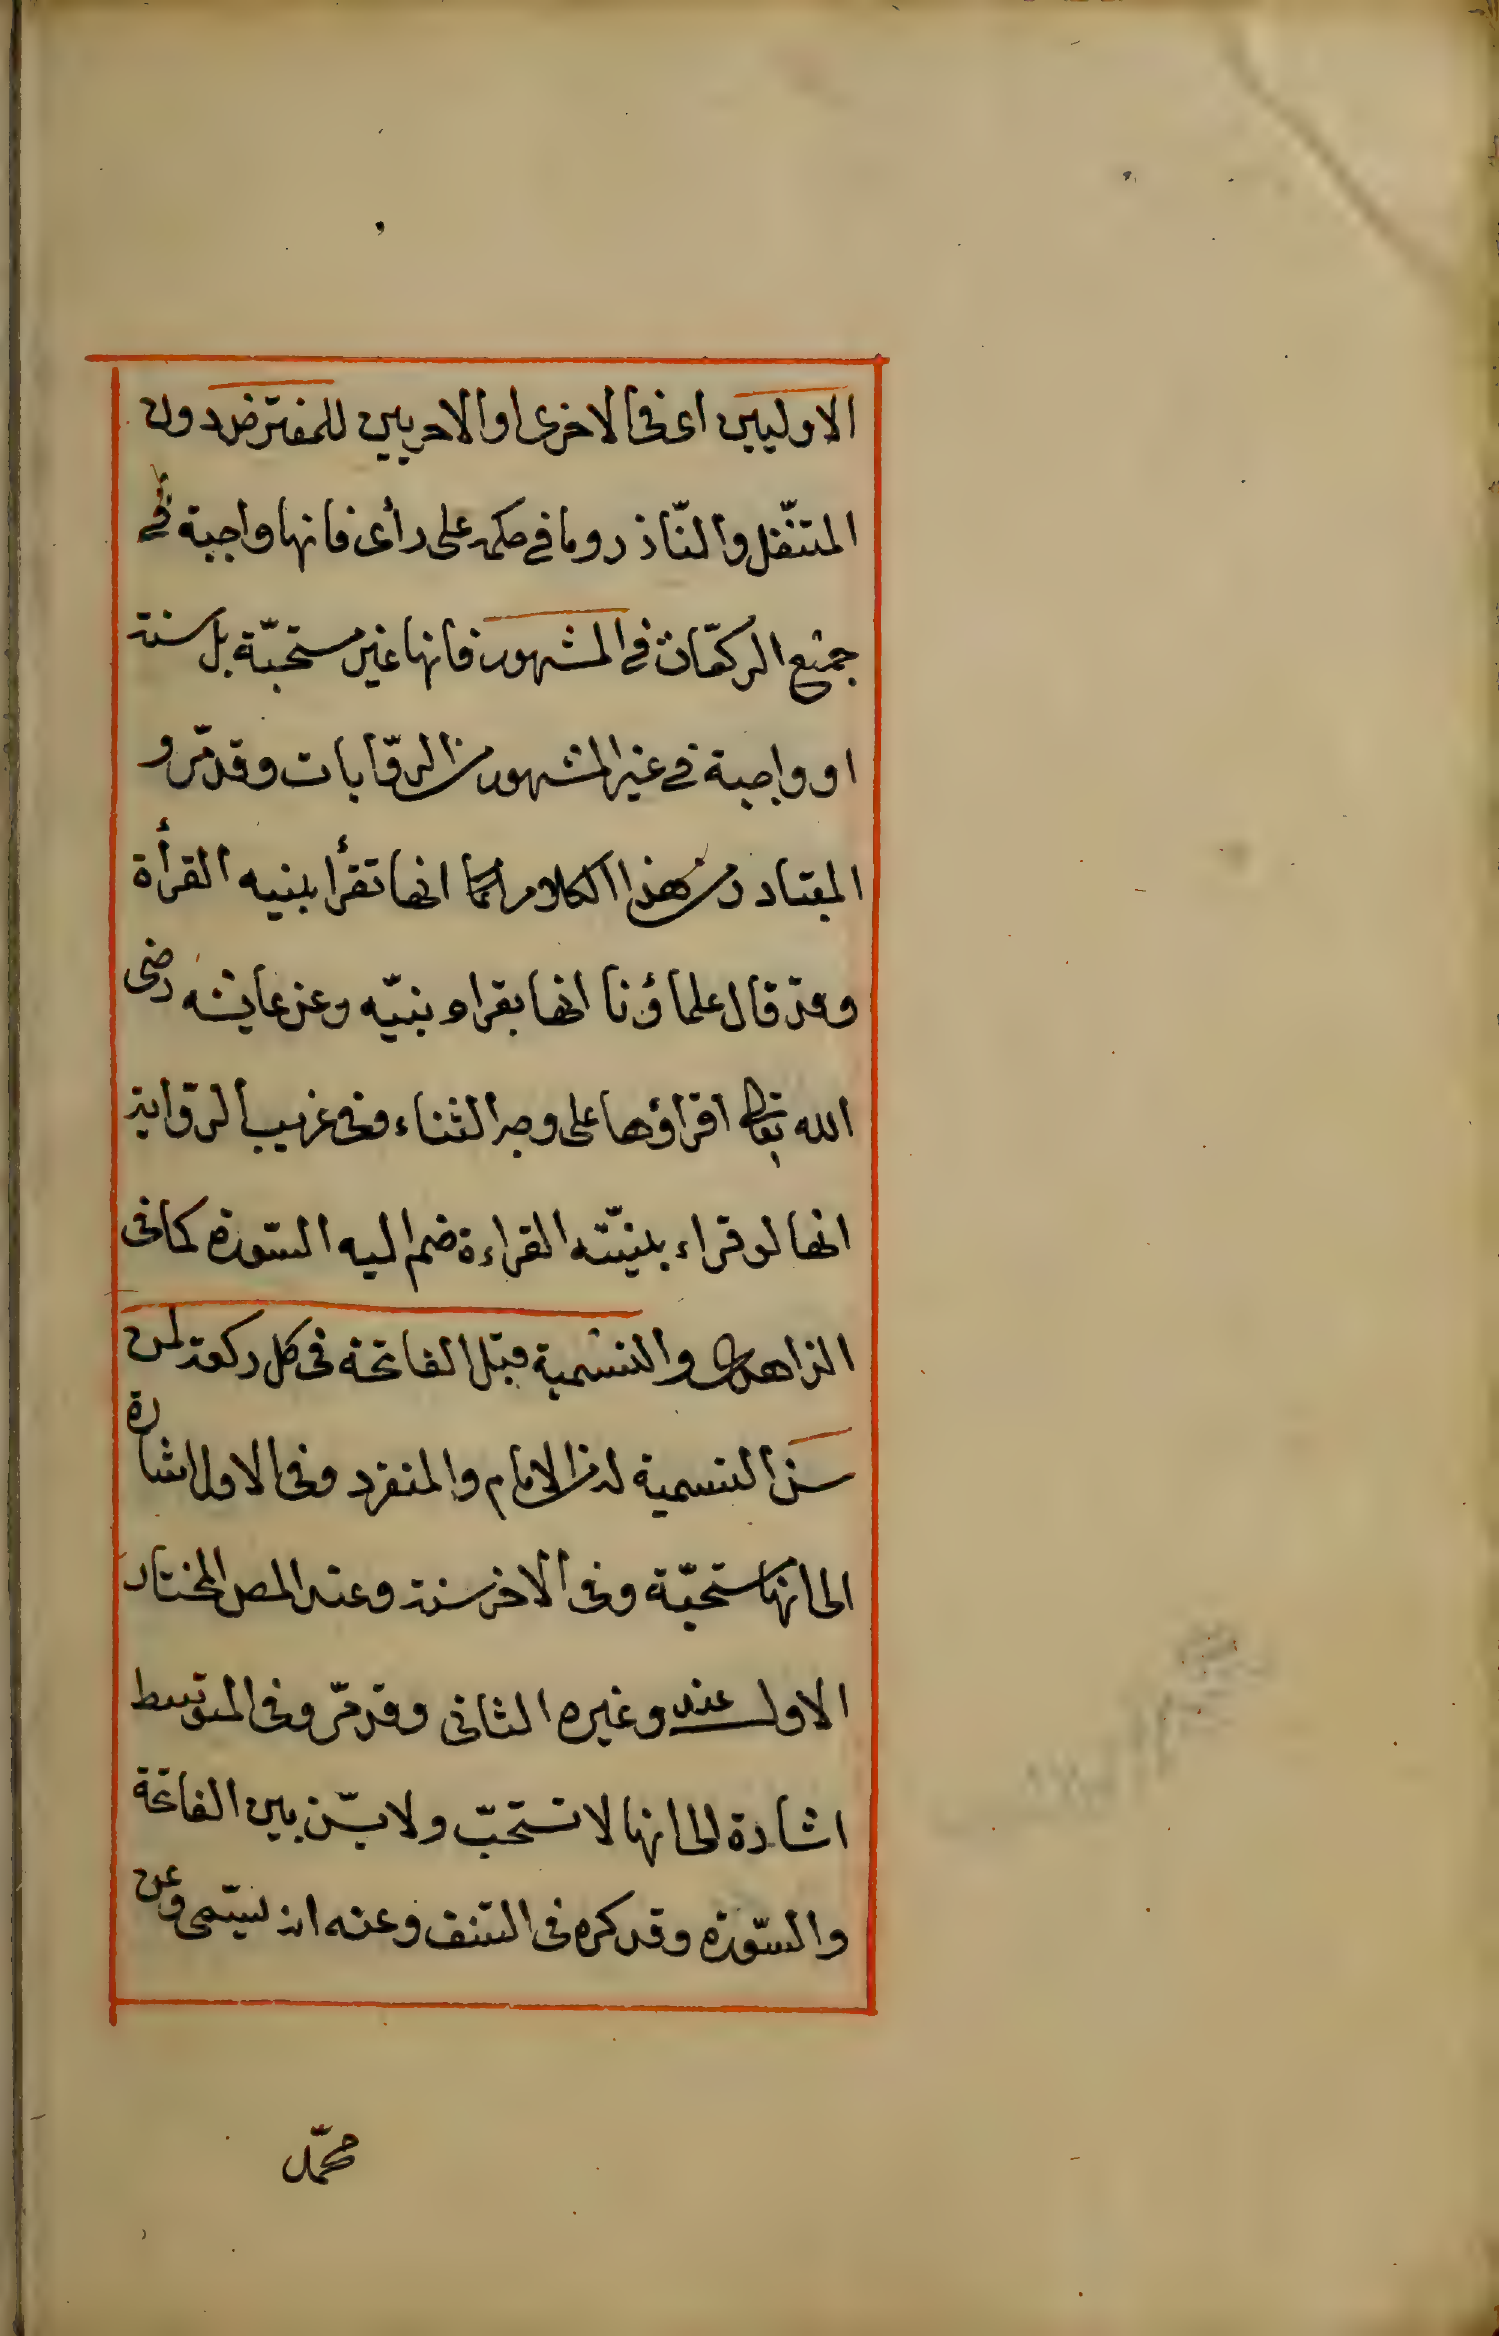 الاوليين اى فى الاخرى او الاخريين للمفترض دون
المتنّفل والنّاذر وما فى حكمه على رأى فانها واجبة فى
جميع الركعات فى المشهور فانها غير مستحبّة بل سنة
او واجبة فى غير المشهور من الروّايات وقد مّر و
المتبادر من هذا الكلام انها تقرأ بنيه القرأة
وقد قال علماؤنا انها يقراء بنيّه وعن عايشه رضى
الله تعالى اقراؤها على وجه الثناء وفى غريب الروّاية
انها لو قراء بنيّته القراءة ضم اليه السّورة كما فى
الزاهدى والتسمية قبل الفاتحة فى كل ركعة لمن
سن التسمية له من الامام والمنفرد وفى الاول اشارة
الى انها مستحبّة وفى الاخر سنة وعند المص المختار
الاول عند وغيره الثانى وقد مّر وفى المتوسط
اشارة الى انها لا تستحبّ ولا يسّن بين الفاتحة
والسّورة وقد كره فى التنف وعنه انه يسّمى وعن
محمّد